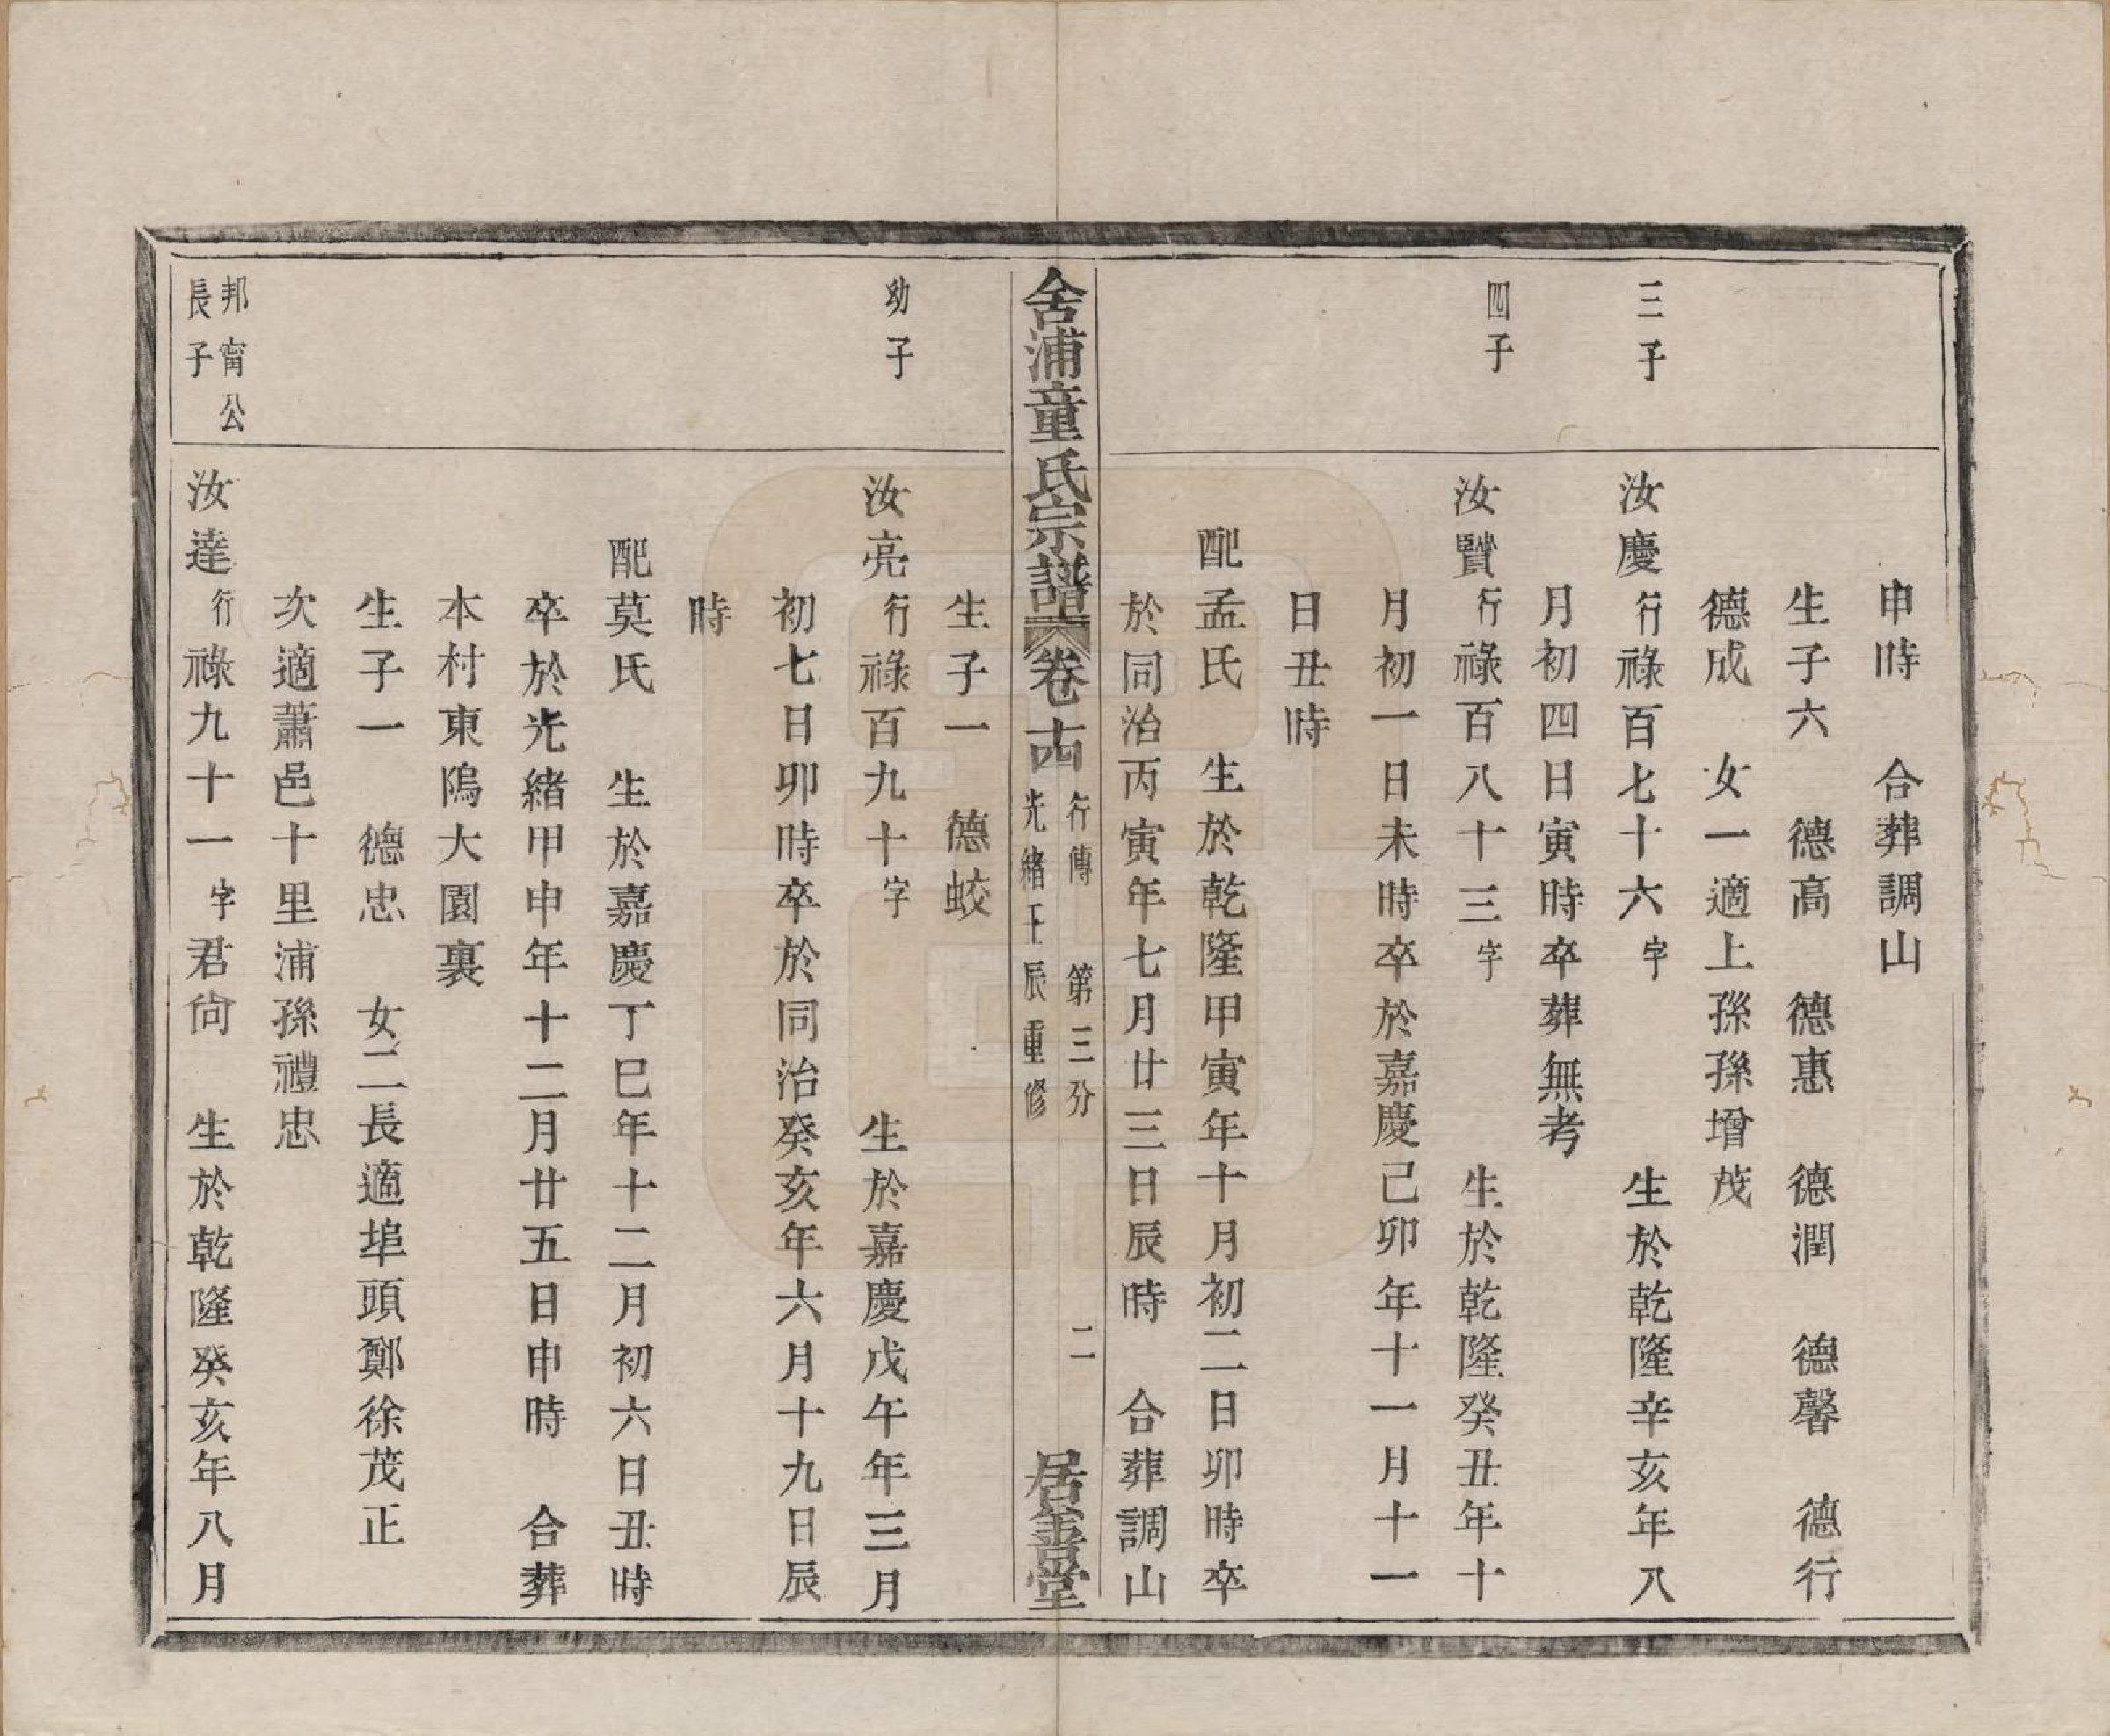 申時　合葬調山
生子六　德高　德惠　德潤　德馨　德行
德成　女一適上孫孫增茂
三子
汝慶行祿百七十六字　生於乾隆辛亥年八
月初四日寅時卒葬無考
四子
汝賢行祿百八十三字　生於乾隆癸丑年十
月初一日未時卒於嘉慶己卯年十一月十一
日丑時
配孟氏　生於乾隆甲寅年十月初二日卯時卒
於同治丙寅年七月廿三日辰時　合葬調山
舍浦童氏宗譜　卷十四　行傳　第三分　光緒壬辰重修　二　居善堂
生子一　德蛟
幼子
汝亮行祿百九十字　生於嘉慶戊午年三月
初七日卯時卒於同治癸亥年六月十九日辰
時
配莫氏　生於嘉慶丁巳年十二月初六日丑時
卒於光緒甲申年十二月廿五日申時　合葬
本村東隖大園裏
生子一　德忠　女二長適埠頭鄭徐茂正
次適蕭邑十里浦孫禮忠
邦甯公
長子
汝達行祿九十一字君尙　生於乾隆癸亥年八月